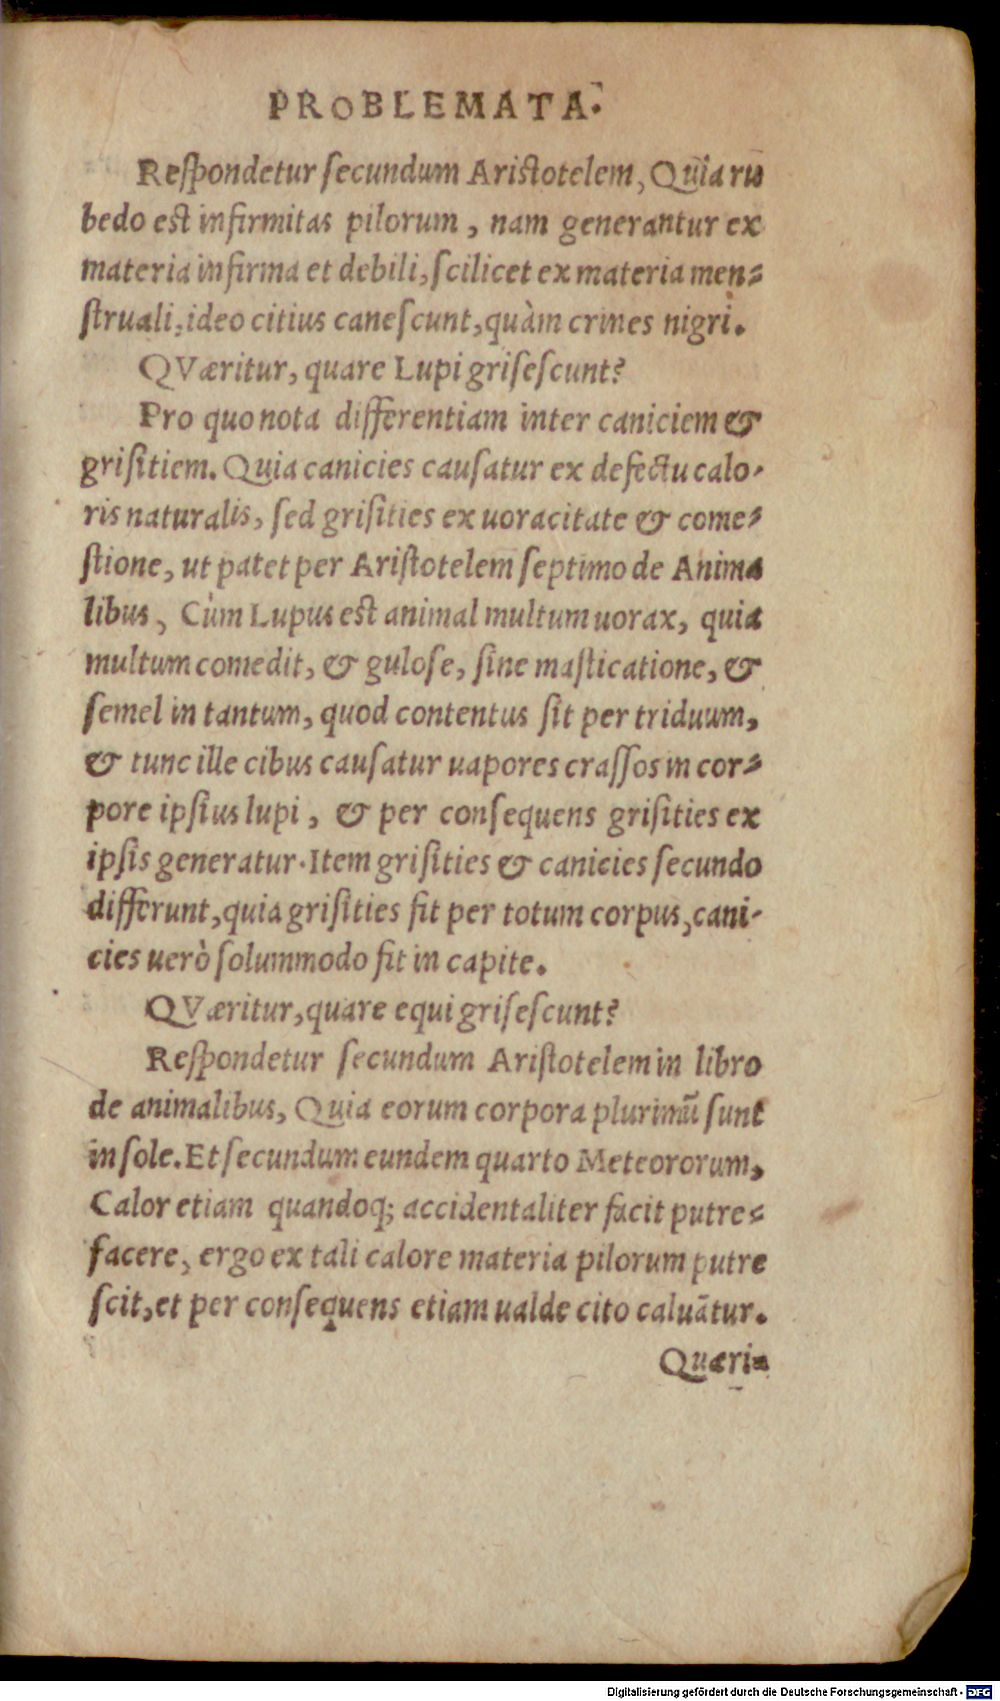 PROBLEMATA.
Respondetur secundum Aristotelem, Quia ru
bedo est infirmitas pilorum, nam generantur ex
materia infirma et debili, scilicet ex materia men-
struali, ideo citius canescunt, quàm crines nigri.
QVæritur, quare Lupi grisescunt?
Pro quo nota differentiam inter caniciem &
grisitiem. Quia canicies causatur ex defectu calo-
ris naturalis, sed grisities ex uoracitate & come-
stione, ut patet per Aristotelem septimo de Anima
libus, Cùm Lupus est animal multum uorax, quia
multum comedit, & gulose, sine masticatione, &
semel in tantum, quod contentus sit per triduum,
& tunc ille cibus causatur uapores crassos in cor-
pore ipsius lupi, & per consequens grisities ex
ipsis generatur. Item grisities & canicies secundo
differunt, quia grisities fit per totum corpus, cani-
cies uerò solummodo fit in capite.
QVæritur, quare equi grisescunt?
Respondetur secundum Aristotelem in libro
de animalibus, Quia eorum corpora plurimũ sunt
in sole. Et secundum eundem quarto Meteororum,
Calor etiam quandoq; accidentaliter facit putre-
facere, ergo ex tali calore materia pilorum putre
scit, et per consequens etiam ualde cito caluãtur.
Quæri-
Digitalisierung gefördert durch die Deutsche Forschungsgemeinschaft - DFG